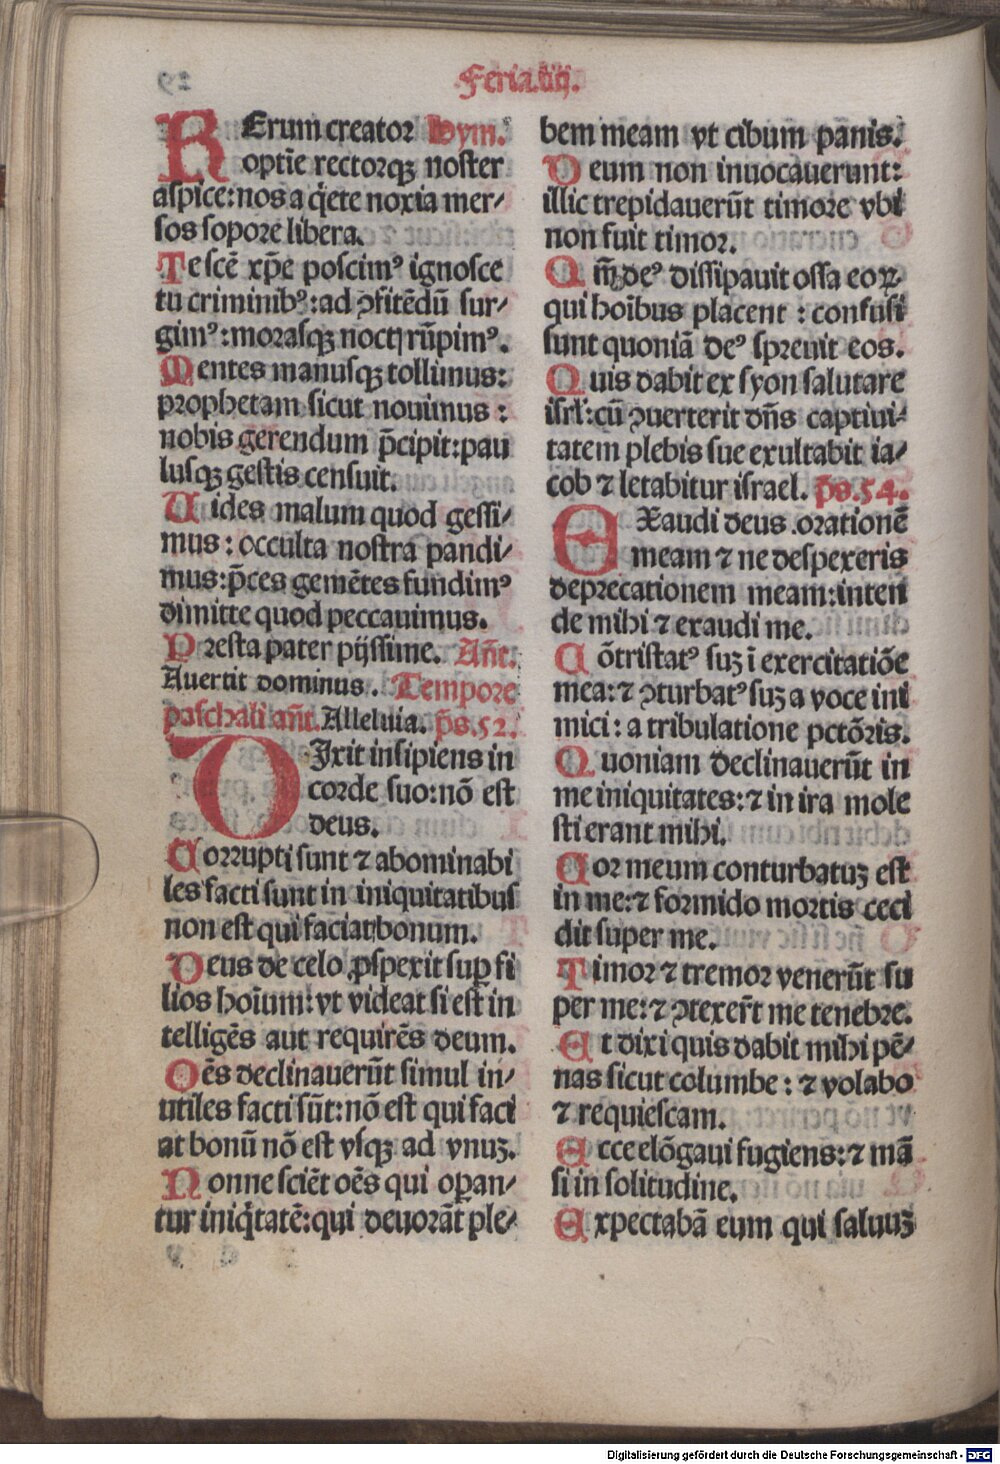 Feria.iiij.
RErum creator Hym.
optīe rectorqꝫ noster
aspice:nos a q̄ete noxia mer⸗
sos sopore libera.
Te scē xp̄e poscimꝰ ignosce
tu criminibꝰ:ad ꝯfitēdū sur⸗
gimꝰ:morasqꝫ noctꝭ rūpimꝰ.
Mentes manusqꝫ tollimus:
prophetam sicut nouimus :
nobis gerendum p̄cipit:pau
lusqꝫ gestis censuit.
Uides malum quod gessi⸗
mus : occulta nostra pandi⸗
mus:p̄ces gemētes fundimꝰ
dimitte quod peccauimus.
Presta pater pijssime. Añt.
Auertit dominus. Tempore
paschali añt. Alleluia. p̄s.52.
DIxit insipiens in
corde suo:nō est
deus.
Corrupti sunt ⁊ abominabi
les facti sunt in iniquitatibus
non est qui faciat bonum.
Deus de celo ꝓspexit suꝑ fi
lios hoīum: vt videat si est in
telligēs aut requirēs deum.
Oēs declinauerūt simul in⸗
utiles facti sūt:nō est qui faci
at bonū nō est vsqꝫ ad vnuꝫ.
Nonne sciēt oēs qui oꝑan⸗
tur iniq̄tatē:qui deuorāt ple⸗
bem meam vt cibum panis.
Deum non inuocauerunt:
illic trepidauerūt timore vbi
non fuit timor.
Qm̄ deꝰ dissipauit ossa eoꝝ
qui hoībus placent : confusi
sunt quoniā deꝰ spreuit eos.
Quis dabit ex syon salutare
isrl':cū ꝯuerterit dn̄s captiui⸗
tatem plebis sue exultabit ia⸗
cob ⁊ letabitur israel. p̄s.54.
EXaudi deus orationē
meam ⁊ ne despexeris
deprecationem meam:inten
de mihi ⁊ exaudi me.
Cōtristatꝰ suꝫ ī exercitatiōe
mea:⁊ ꝯturbatꝰ suꝫ a voce ini
mici : a tribulatione pctōris.
Quoniam declinauerūt in
me iniquitates:⁊ in ira mole
sti erant mihi.
Cor meum conturbatuꝫ est
in me:⁊ formido mortis ceci
dit super me.
Timor ⁊ tremor venerūt su
per me:⁊ ꝯtexer̄t me tenebre.
Et dixi quis dabit mihi pē⸗
nas sicut columbe : ⁊ volabo
⁊ requiescam.
Ecce elōgaui fugiens:⁊ mā
si in solitudine.
Expectabā eum qui saluuꝫ
Digitalisierung gefördert durch die Deutsche Forschungsgemeinschaft - DFG